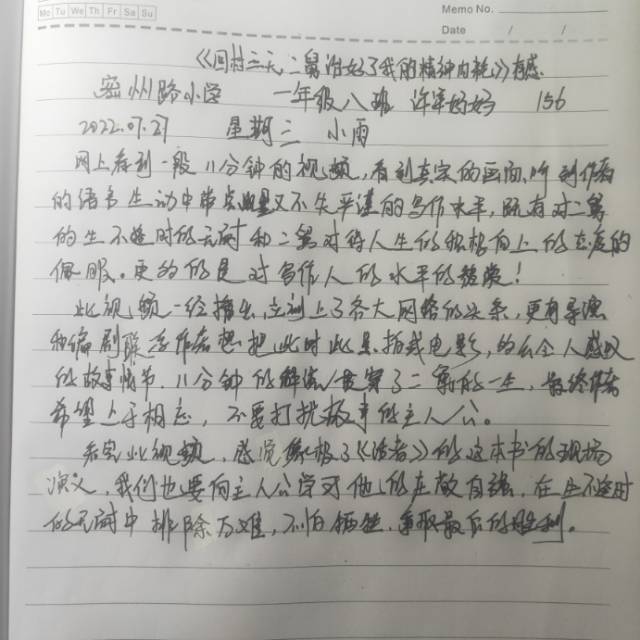 Mo Tu We Th Fr Sa Su
Memo No.
Date / /
《回村三天二舅治好了我的精神内耗》有感
密州路小学 一年级八班 许 妈妈 156
2022.07.27 星期三 小雨
网上看到一段11分钟的视频,看到真实的画面,听到作者
的语言生动中带点 又不失平淡的写作水平,既有对二舅
的生不逢时的无奈和二舅对待人生的积极向上的态度的
佩服。更多的是对写作人的水平的赞赏!
此视频一经播出,立刻上了各大网络的头条,更有导演
和编剧 作者想把此时此景拍成电影,的么令人感叹
的故事情节,11分钟的解读贯穿了二舅的一生,最终作者
希望上手相忘,不要打扰故事的主人公。
看完此视频,感觉像极了《活者》的这本书的现场
演义,我们也要向主人公学习他的 自强,在生不逢时
的无奈中排除万难,不怕牺牲,争取最后的胜利。